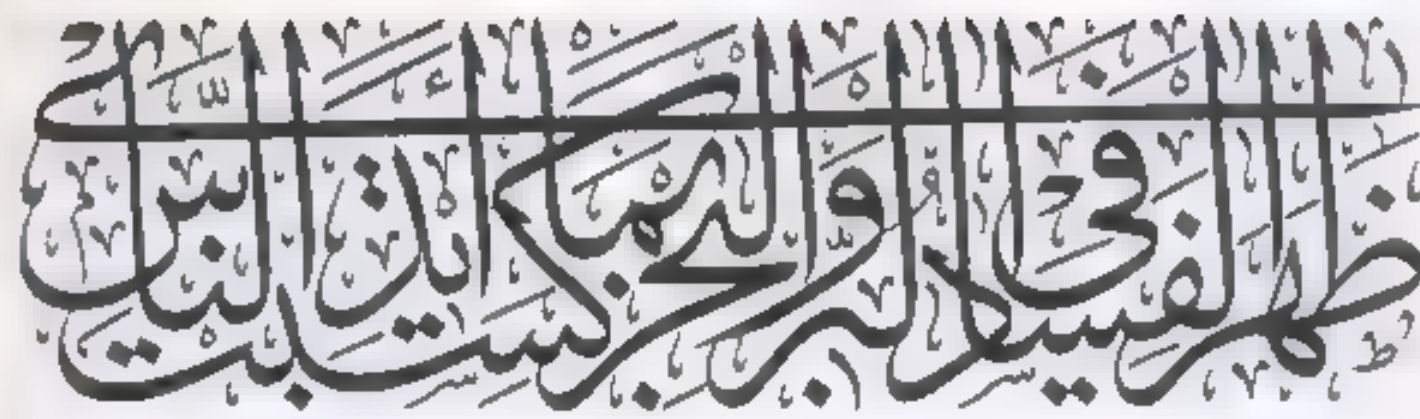 ظهر الفساد في البر والبحر بما كسبت ايدي الناس